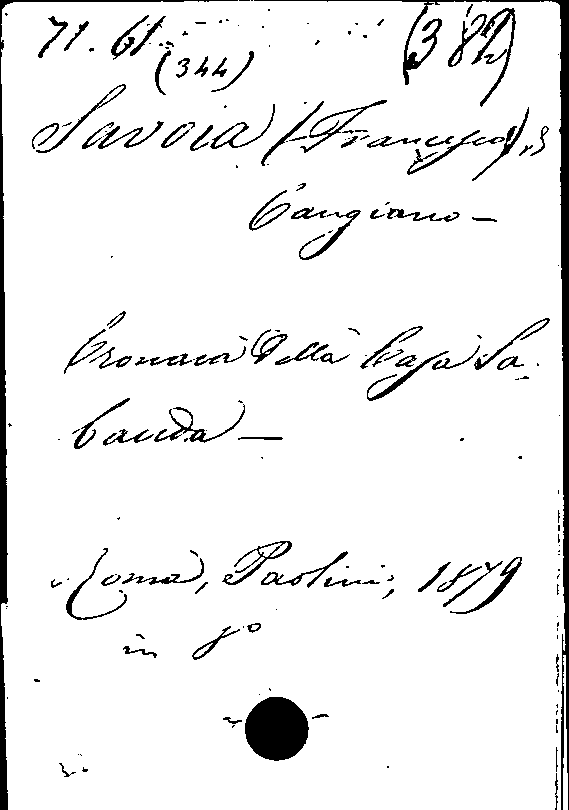 71. 61
(344)
(382)
Savoia (Francesco),
Cangiano —
Cronaca della Casa Sa-
bauda —
Roma, Paolini, 1879
in 8°